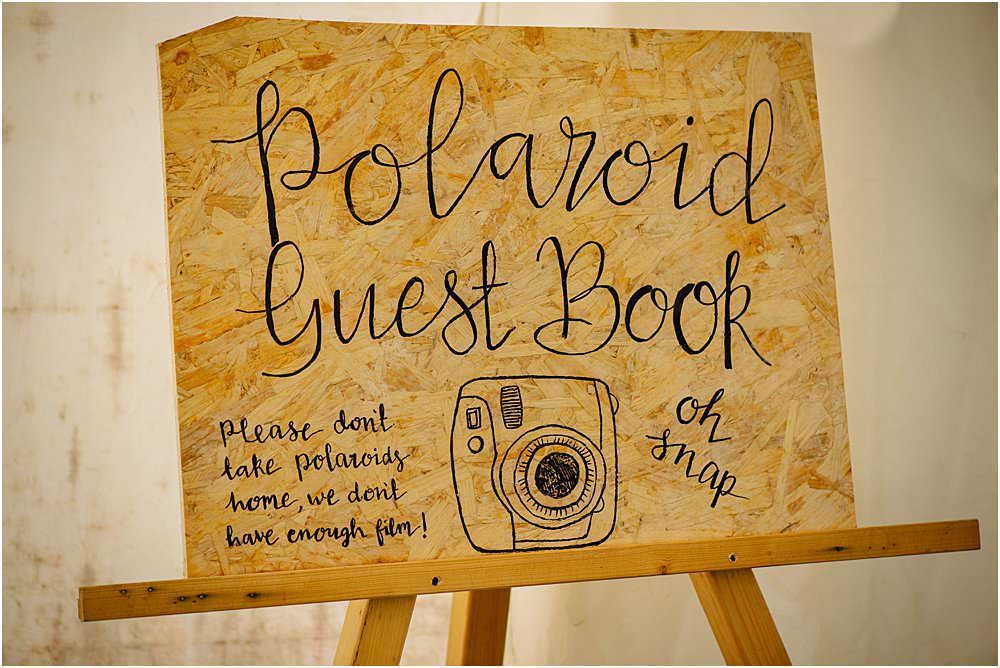 Polaroid
Guest Book
Please don't
take polaroids
home, we don't
have enough film!
oh
snap